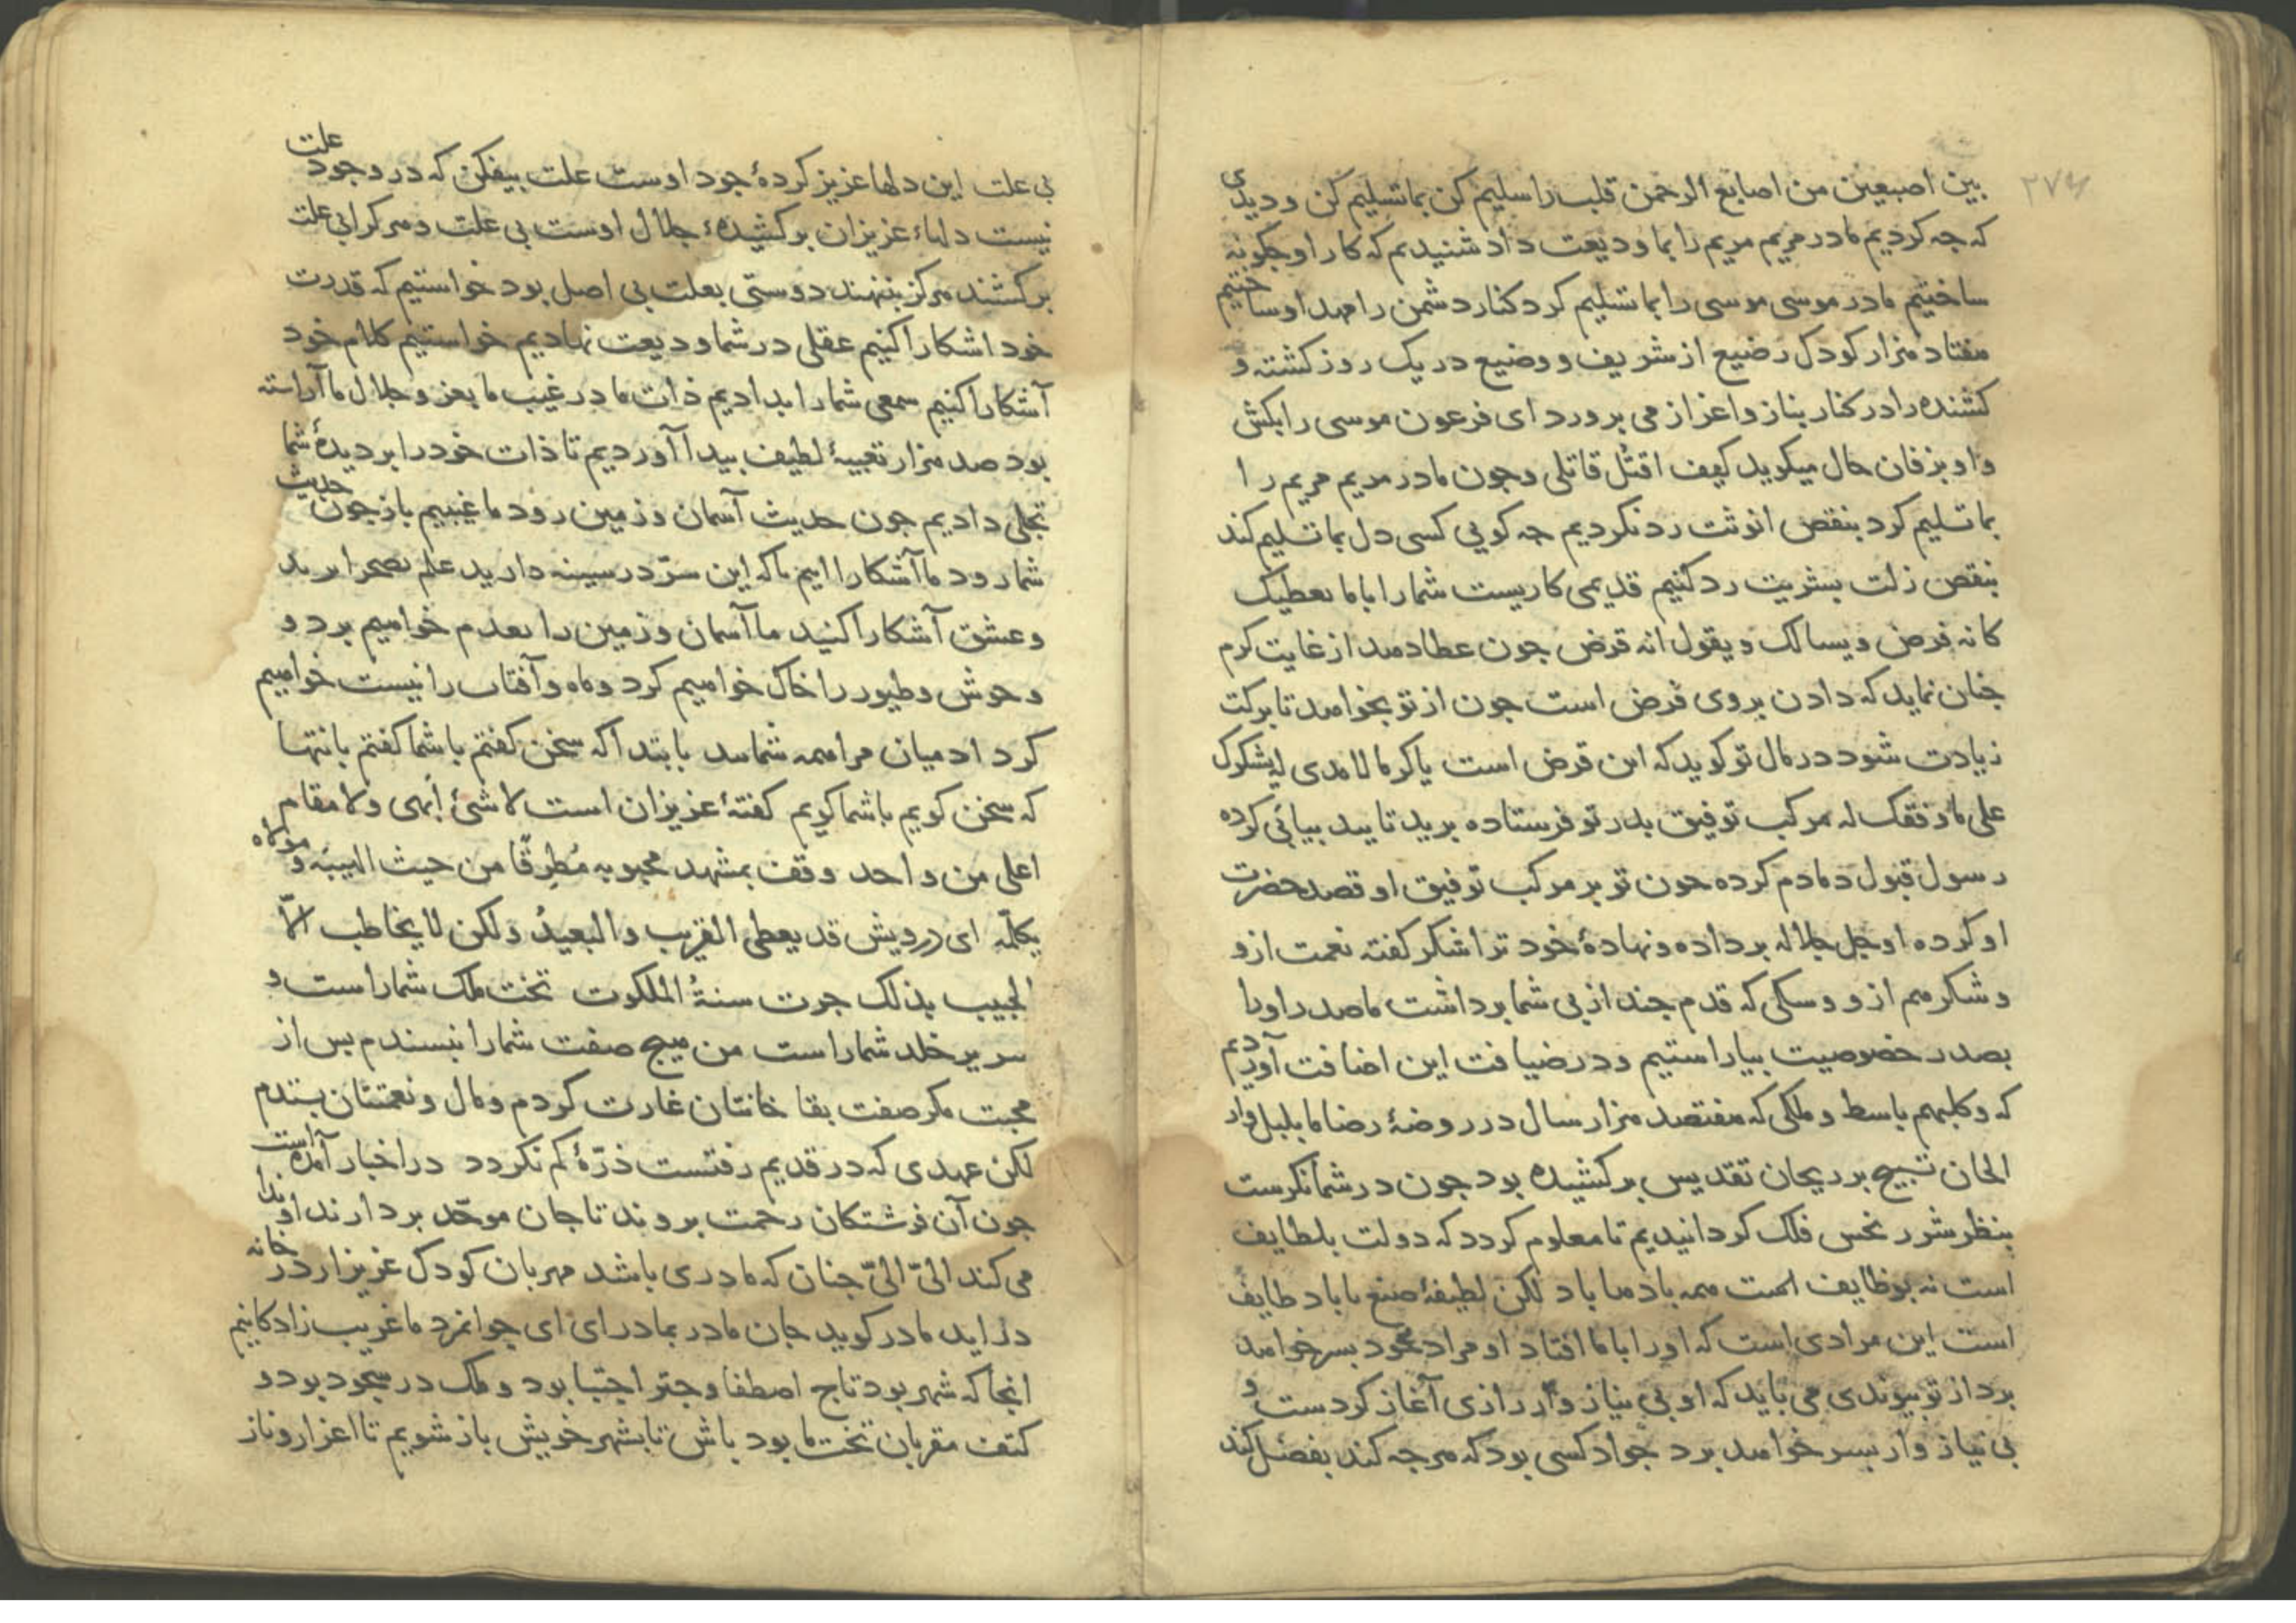 ۲۷۴
بین اصبعین من اصابع الرحمن قلب را سلیم کن بما تسلیم کن و دیدی
که جه کردیم مادر مریم مریم را بما ودیعت داد شنیدیم که کار او جکونه
ساختیم مادر موسی موسی را بما تسلیم کرد کنار دشمن را مهد او ساختیم
هفتاد هزار کودک رضیع از شریف و وضیع در یک روز کشته و
کشنده را در کنار بناز و اعزاز می برورد ای فرعون موسی را بکش
و او بزفان حال میکوید کیف اقتل قاتلی و جون مادر مریم مریم را
بما تسلیم کرد بنقص انوثت رد نکردیم جه کویی کسی دل بما تسلیم کند
بنقص زلت بشریت رد کنیم قدیمی کاریست شما را با ما یعطیک
کانه فرض و یسالک و یقول انه قرض جون عطا دهد از غایت کرم
جنان نماید که دادن بر وی فرض است جون از تو بخواهد تا برکت
زیادت شود در مال تو کوید که این قرض است یا کرما لا مدی له یشکرک
علی ما وفقک له مرکب توفیق بدر تو فرستاده برید تایید بیابی کرده
رسول قبول دمادم کرده جون تو بر مرکب توفیق او قصد حضرت
او کرده او جل جلاله برداده و نهادهٔ خود ترا شکر کفته نعمت ازو
و شکر هم ازو و سکی که قدم جند از بی شما برداشت ما صدر او را
بصدر خصوصیت بیاراستیم و در ضیافت این اضافت آوردیم
که و کلبهم باسط و ملکی که هفتصد هزار سال در روضهٔ رضا ما بلبل وار
الحان تسبیح بر ریحان تقدیس برکشیده بود جون در شما نکرست
بنظر شور نحس فلک کردانیدیم تا معلوم کردد که دولت بلطایف
است نه بوظایف همه باد ها باد لکن لطیفهٔ صنع ما باد طایف
است این مرادی است که او را با ما افتاد او مراد خود بسر خواهد
برد از تو بیوندی می باید که او بی نیاز وار رازی آغاز کردست و
بی نیاز وار بسر خواهد برد جواد کسی بود که هرجه کند بفضل کند
بی علت این دلها عزیز کردهٔ جود اوست علت بیفکن که در وجود علت
نیست دلهاء عزیزان برکشیدهٔ جلال اوست بی علت و هر کرا بی علت
برکشند هرکز بننهند دوستی بعلت بی اصل بود خواستیم که قدرت
خود اشکارا کنیم عقلی در شما ودیعت نهادیم خواستیم کلام خود
آشکارا کنیم سمعی شما را بدادیم ذات ما در غیب ما بعز و جلال ما آراسته
بود صد هزار تعبیهٔ لطیف بیدا آوردیم تا ذات خود را بر دیدهٔ شما
تجلی دادیم جون حدیث آسمان و زمین رود ما غیبیم باز جون حدیث
شما رود ما آشکاراایم ما که این سرّ در سینه دارید علم بصحرا برید
و عشق آشکارا کنید ما آسمان و زمین را بعدم خواهیم برد و
وحوش و طیور را خاک خواهیم کرد و ماه و آفتاب را نیست خواهیم
کرد ادمیان مرا همه شمایید بابتدا که سخن کفتم با شما کفتم بانتها
که سخن کویم با شما کویم کفتهٔ عزیزان است لا شئ أبهی و لا مقام
اعلی من واحد وقف بمشهد محبوبه مُطرِقًا من حیث الهیبه و مولاه
یکلّمه ای درویش قد یعطی القریب و البعیدُ ولکن لا یخاطب الاّ
الحبیب بذلک جرت سنةُ الملکوت تخت ملک شما راست و
سریر خلد شما راست من هیج صفت شما را نبسندم بس از
محبت مکر صفت بقا خانتان غارت کردم و مال و نعمتتان بستدم
لکن عهدی که در قدیم رفتست ذرّهٔ کم نکردد در اخبار آمده است
جون آن فرشتکان رحمت بروند تا جان موحّد بردارند او ندا
می کند الیّ الیّ جنان که مادری باشد مهربان کودک عزیز از در خانه
در اید مادر کوید جان مادر بمادر ای ای جوانمرد ما غریب زادکانیم
انجا که شهر بود تاج اصطفا و جتر اجتبا بود و ملک در سجود بود و
کتف مقربان تخت ما بود باش تا بشهر خویش باز شویم تا اعزاز و ناز